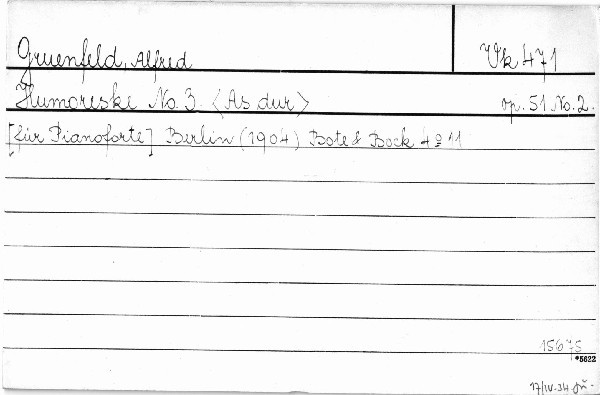 Gruenfeld, Alfred Vk 471
Humoreske No. 3. <As dur> op. 51 No. 2.
[für Pianoforte] Berlin (1904) Bote & Bock 4º 11
15675
*5622
17/IV. 34